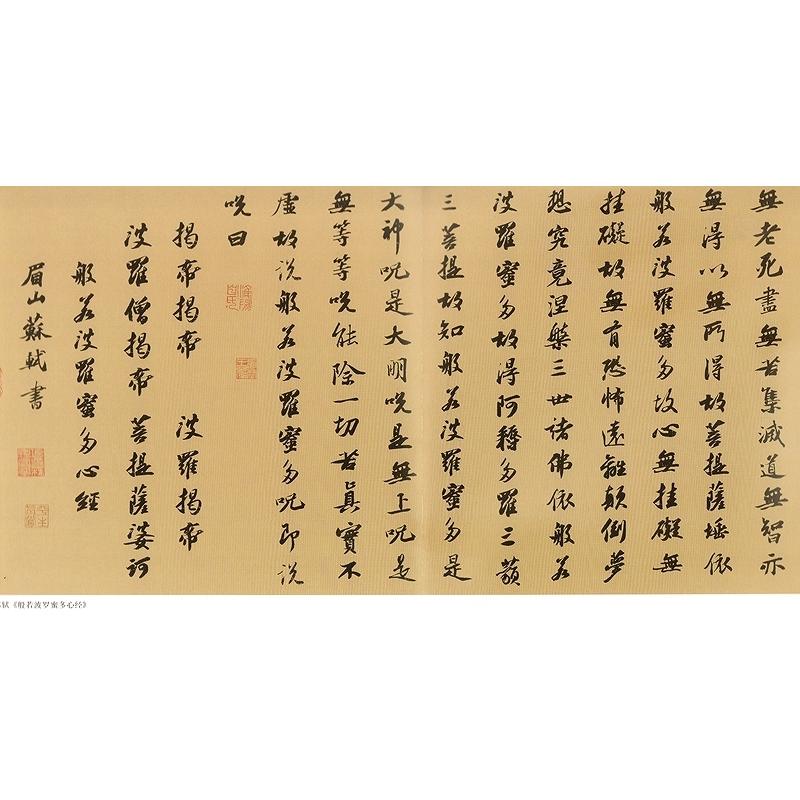 無老死盡無苦集滅道無智亦
無得以無所得故菩提薩埵依
般若波羅蜜多故心無挂礙無
挂礙故無有恐怖遠離顛倒夢
想究竟涅槃三世諸佛依般若
波羅蜜多故得阿耨多羅三藐
三菩提故知般若波羅蜜多是
大神呪是大明呪是無上呪是
無等等呪能除一切苦眞實不
虛故說般若波羅蜜多呪即說
呪曰
揭帝揭帝 波羅揭帝
波羅僧揭帝 菩提薩婆訶
般若波羅蜜多心經
眉山蘇軾書
轼《般若波罗蜜多心经》